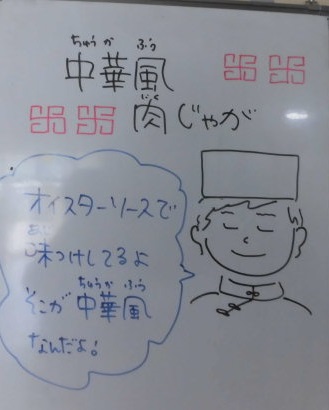 ちゅうか ふう
中華風
にく
肉じゃが
オイスターソースで
あじ
味つけしてるよ
ちゅうか ふう
そこが中華風
なんだよ!